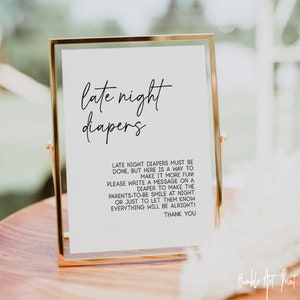 late night
diapers
LATE NIGHT DIAPERS MUST BE
DONE, BUT HERE IS A WAY TO
MAKE IT MORE FUN!
PLEASE WRITE A MESSAGE ON A
DIAPER TO MAKE THE
PARENTS-TO-BE SMILE AT NIGHT
OR JUST TO LET THEM KNOW
EVERYTHING WILL BE ALRIGHT!
THANK YOU
Humble Art Print